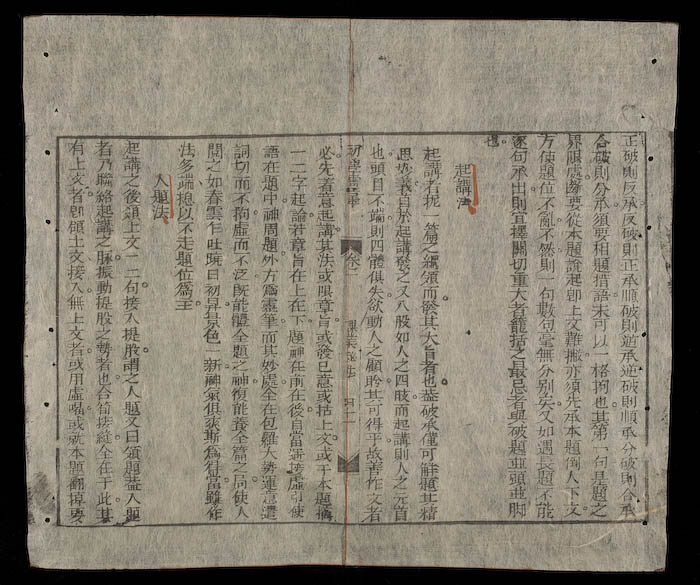 正破則反承反破則正承順破則逆承逆破則順承分破則合承
合破則分承須要相題措語未可以一格拘也其第一句是題之
界限處總要從本題說起即上文難撇亦須先承本題倒入下文
方使題位不亂不然則一句數句毫無分別矣又如遇長題不能
逐句承出則宜擇關切重大者籠括之最忌者與破題並頭並脚
也
起講法
起講者挖一篇之綱領而發其大旨者也蓋破承僅可解題其精
思妙義自於起講發之又八股如人之四肢而起講則人之元首
也頭目不端則四體俱失欲動人之顧盼其可得乎故善作文者
卷二
必先着意起講其法或限章旨或發己意或括上文或于本題摘
一二字起論若章旨在上在下題神在前在後自當遙接虛引使
語在題中神周題外方為靈筆而其妙處全在包羅大勢運意遣
詞切而不拘虛而不泛既能體全題之神復能養全篇之局使人
閱之如春雲乍吐曉日初昇景色一新神氣俱
為佳當雖作
法多端總以不走題位為主
入題法
起講之後領上文一二句接入提股謂之入題又曰領題蓋入題
者乃聯絡起講之脈振動提股之勢者也合筍接縫全在于此其
有上文者即領上文接入無上文者或用虛喝或就本題翻掉要